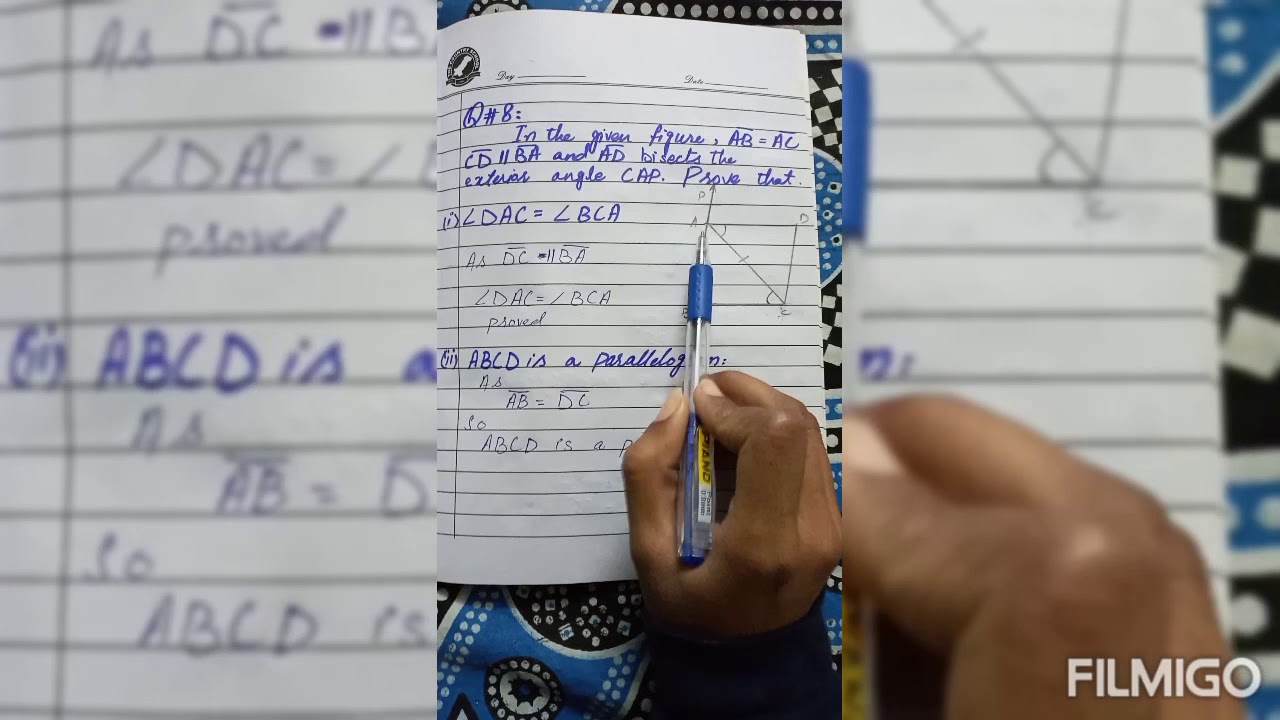 Day
Date
Q#8:
In the given figure, AB = AC
CD || BA and AD bisects the
exterior angle CAP. Prove that.
(i) ∠DAC = ∠BCA
As DC || BA
∠DAC = ∠BCA
proved
P
A
D
B
C
(ii) ABCD is a parallelog n:
As
AB = DC
So
ABCD is a p
PIANO
Point
FILMIGO